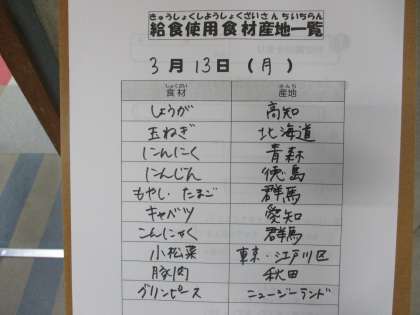 きゅうしょくしようしょくざいさんちいちらん
給食使用食材産地一覧
3月13日(月)
しょくざい さんち
食材 産地
しょうが 高知
玉ねぎ 北海道
にんにく 青森
にんじん 徳島
もやし・たまご 群馬
キャベツ 愛知
こんにゃく 群馬
小松菜 東京・江戸川区
豚肉 秋田
グリンピース ニュージーランド